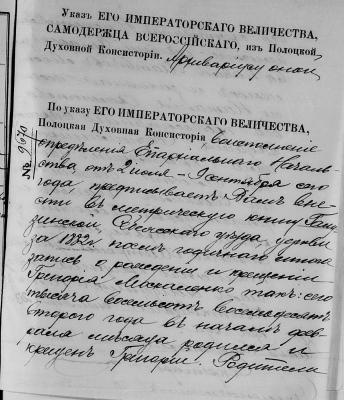 Указъ ЕГО ИМПЕРАТОРСКАГО ВЕЛИЧЕСТВА,
САМОДЕРЖЦА ВСЕРОССІЙСКАГО, изъ Полоцкой
Духовной Консисторіи. Архиваріусу оной
По указу ЕГО ИМПЕРАТОРСКАГО ВЕЛИЧЕСТВА,
Полоцкая Духовная Консисторія,
опредѣленія Епархіальнаго Началь-
ства, отъ 2 іюля - Сентября сего
года предписываетъ Вамъ вне-
сти въ метрическую книгу
уѣзда, церкви
за 1882 г. послѣ годичнаго итога
запись о рожденіи и крещеніи
Григорія такъ: сего
тысяча восемьсотъ восемьдесятъ
второго года въ началѣ фев-
раля мѣсяца родился и
крещенъ Григорій. Родители
№ 9670